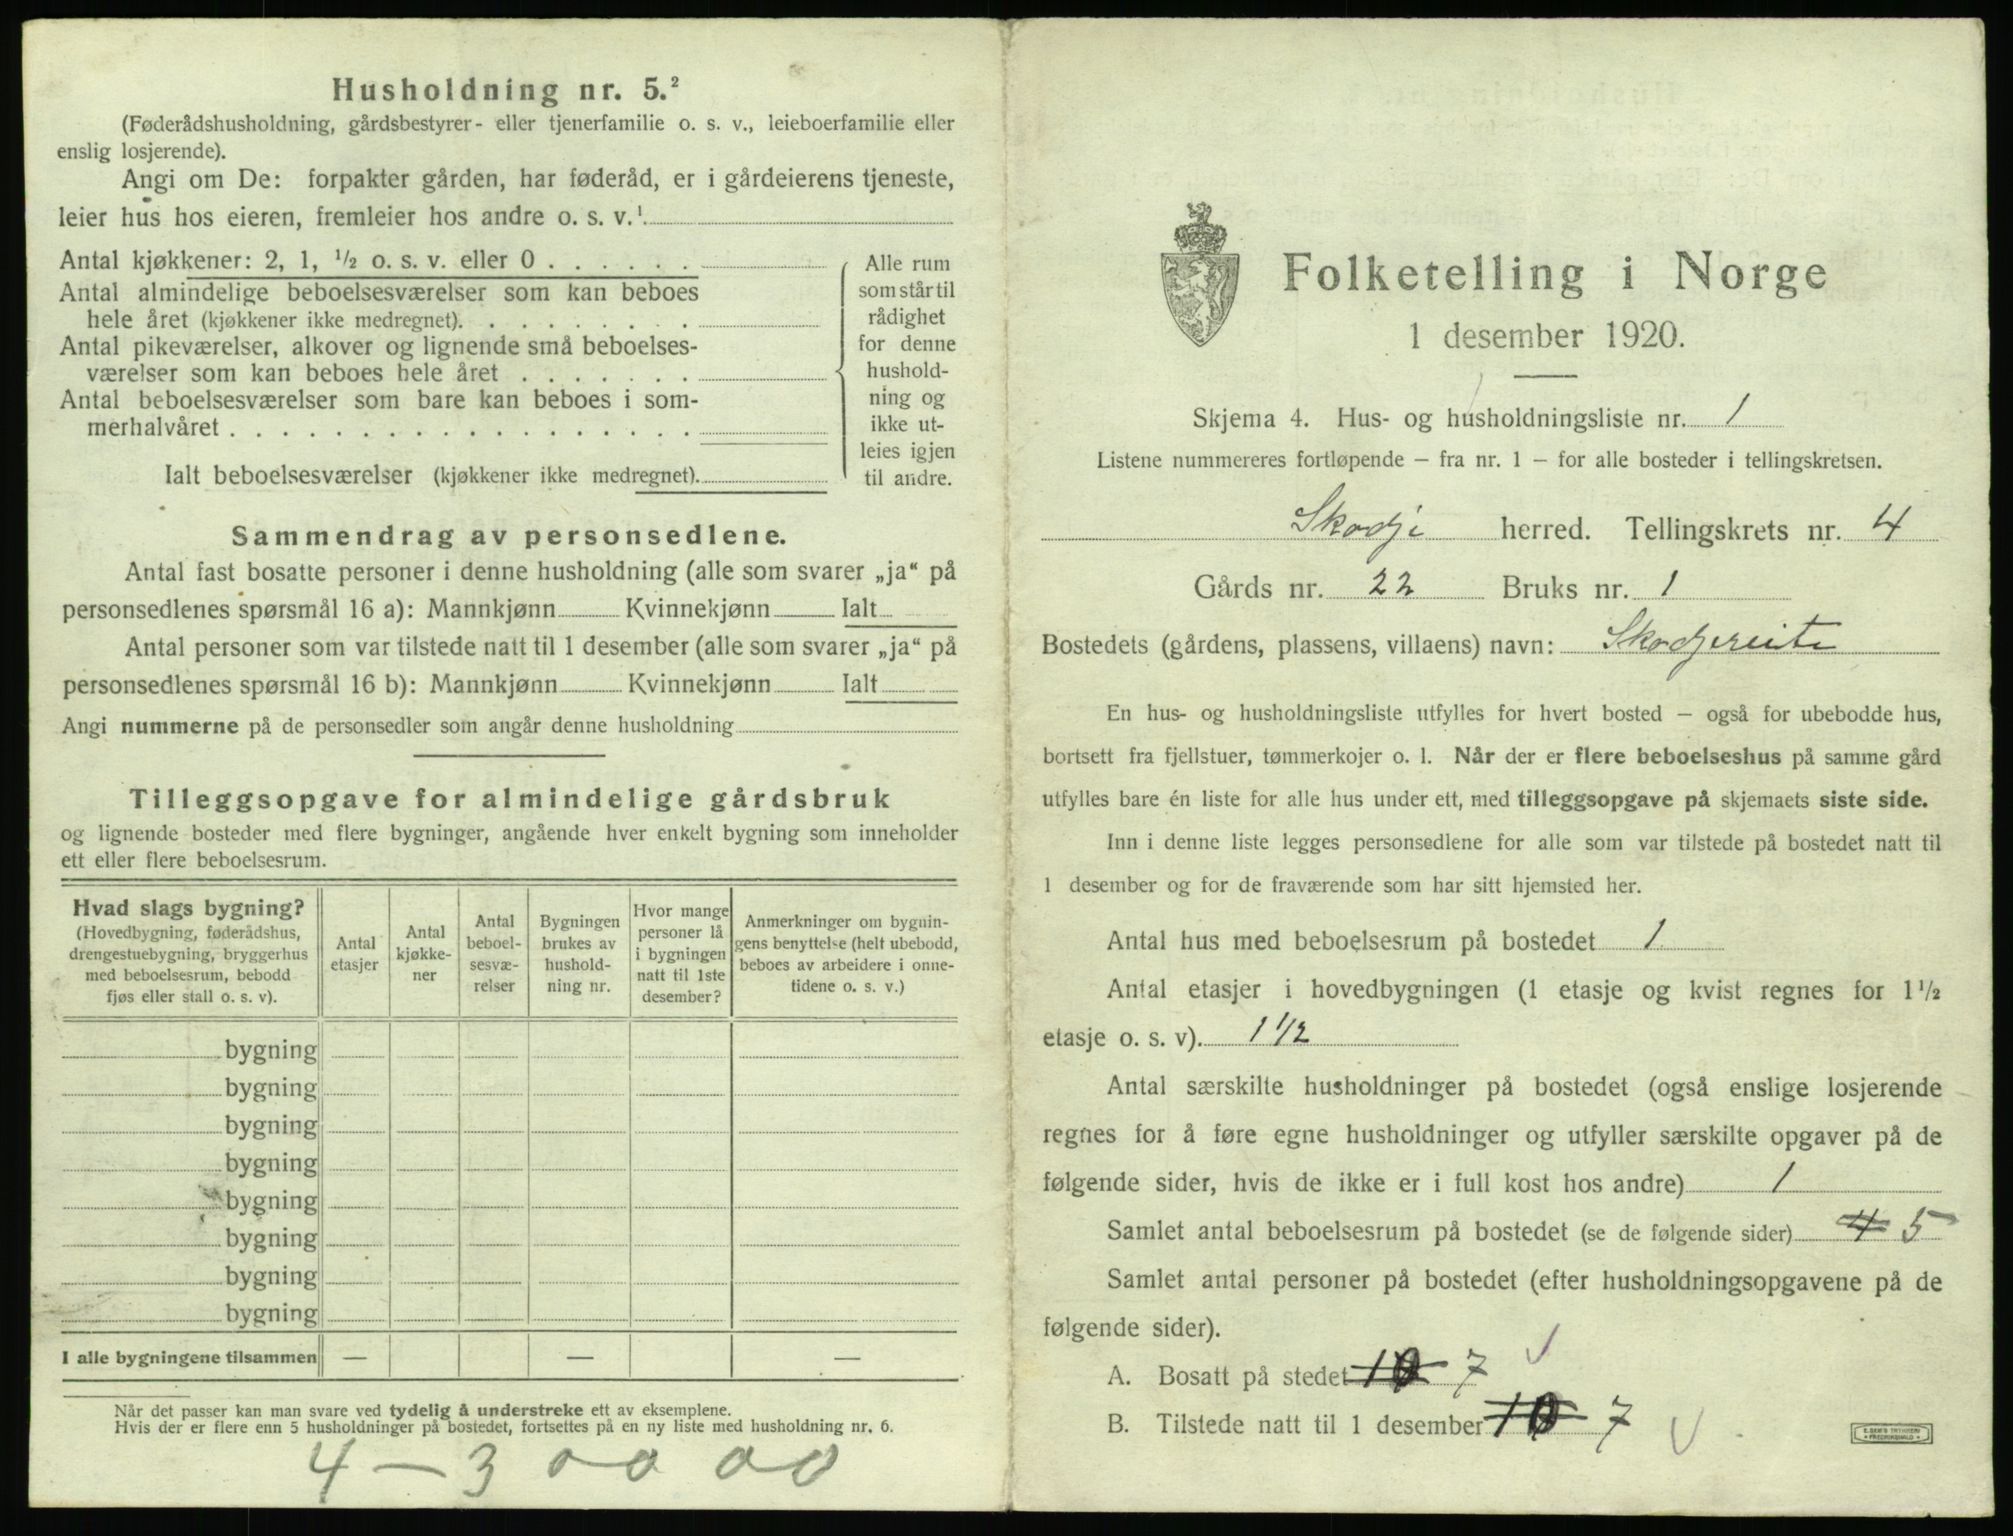 Husholdning nr. 5.²
(Føderådshusholdning, gårdsbestyrer- eller tjenerfamilie o. s. v., leieboerfamilie eller
enslig losjerende).
Angi om De: forpakter gården, har føderåd, er i gårdeierens tjeneste,
leier hus hos eieren, fremleier hos andre o. s. v.¹
Antal kjøkkener: 2, 1, ½ o. s. v. eller 0 . . . . . .
Antal almindelige beboelsesværelser som kan beboes
hele året (kjøkkener ikke medregnet). . . . . . . . .
Antal pikeværelser, alkover og lignende små beboelses-
værelser som kan beboes hele året . . . . . . .
Antal beboelsesværelser som bare kan beboes i som-
merhalvåret . . . . . . . . . . . . . . . . . .
Ialt beboelsesværelser (kjøkkener ikke medregnet).
Alle rum
som står til
rådighet
for denne
hushold-
ning og
ikke ut-
leies igjen
til andre.
Sammendrag av personsedlene.
Antal fast bosatte personer i denne husholdning (alle som svarer „ja“ på
personsedlenes spørsmål 16 a): Mannkjønn Kvinnekjønn Ialt
Antal personer som var tilstede natt til 1 desember (alle som svarer „ja“ på
personsedlenes spørsmål 16 b): Mannkjønn Kvinnekjønn Ialt
Angi nummerne på de personsedler som angår denne husholdning
Tilleggsopgave for almindelige gårdsbruk
og lignende bosteder med flere bygninger, angående hver enkelt bygning som inneholder
ett eller flere beboelsesrum.
Hvad slags bygning?
(Hovedbygning, føderådshus,
drengestuebygning, bryggerhus
med beboelsesrum, bebodd
fjøs eller stall o. s. v).
Antal
etasjer
Antal
kjøkke-
ner
Antal
beboel-
sesvæ-
relser
Bygningen
brukes av
hushold-
ning nr.
Hvor mange
personer lå
i bygningen
natt til 1ste
desember?
Anmerkninger om bygnin-
gens benyttelse (helt ubebodd,
beboes av arbeidere i onne-
tidene o. s. v.)
bygning
bygning
bygning
bygning
bygning
bygning
bygning
bygning
I alle bygningene tilsammen — — —
Når det passer kan man svare ved tydelig å understreke ett av eksemplene.
Hvis der er flere enn 5 husholdninger på bostedet, fortsettes på en ny liste med husholdning nr. 6.
4 – 3 00 00
Folketelling i Norge
1 desember 1920.
Skjema 4. Hus- og husholdningsliste nr. 1
Listene nummereres fortløpende – fra nr. 1 – for alle bosteder i tellingskretsen.
Skodje herred. Tellingskrets nr. 4
Gårds nr. 22 Bruks nr. 1
Bostedets (gårdens, plassens, villaens) navn: Skodjereite
En hus- og husholdningsliste utfylles for hvert bosted – også for ubebodde hus,
bortsett fra fjellstuer, tømmerkojer o. l. Når der er flere beboelseshus på samme gård
utfylles bare én liste for alle hus under ett, med tilleggsopgave på skjemaets siste side.
Inn i denne liste legges personsedlene for alle som var tilstede på bostedet natt til
1 desember og for de fraværende som har sitt hjemsted her.
Antal hus med beboelsesrum på bostedet 1
Antal etasjer i hovedbygningen (1 etasje og kvist regnes for 1½
etasje o. s. v). 1 1/2
Antal særskilte husholdninger på bostedet (også enslige losjerende
regnes for å føre egne husholdninger og utfyller særskilte opgaver på de
følgende sider, hvis de ikke er i full kost hos andre) 1
Samlet antal beboelsesrum på bostedet (se de følgende sider) 4 5
Samlet antal personer på bostedet (efter husholdningsopgavene på de
følgende sider).
A. Bosatt på stedet 10 7
B. Tilstede natt til 1 desember 10 7